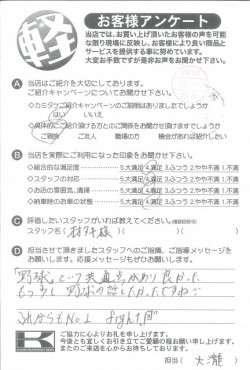 軽
お客様アンケート
当店では、お買い上げ頂いたお客様の声を可能
な限り現場に反映し、お客様により良い商品と
サービスを提供する事に努めています。
大変お手数ですが是非お声をお聞かせ下さい。
A 当店はご紹介を大切にしております。
ご紹介キャンペーンについてお聞かせ下さい。
◇カミタケご紹介キャンペーンのご説明はありましたでしょうか
はい いいえ
◇具体的にご紹介頂ける方とのご関係をお聞かせ頂けますでしょうか
ご親族 ご友人 職場の方 機会があれば紹介したい
B 当店を実際にご利用になった印象をお聞かせ下さい。
◇総合的な満足度 5.大満足 4.満足 3.ふつう 2.やや不満 1.不満
◇スタッフの対応 5.大満足 4.満足 3.ふつう 2.やや不満 1.不満
◇お店の雰囲気、清掃 5.大満足 4.満足 3.ふつう 2.やや不満 1.不満
◇納車時のお車の状態 5.大満足 4.満足 3.ふつう 2.やや不満 1.不満
C 評価したいスタッフがいれば教えてください。(複数回答可)
スタッフ名( 様)
D 担当させて頂きましたスタッフへのご指導、ご指導メッセージを
お願いします。今後の励みになりますので、応援メッセージも
お願いします。
野球という共通点があり良かった
もう少し野球の話したかったですね
これからもNo.1 fight!!
K
ご協力に心よりお礼を申し上げます。
今後とも宜しくお引き立てご愛顧の程お願い申し上げます。
またのご来店を心からお待ちしております。
担当( 大瀧 )